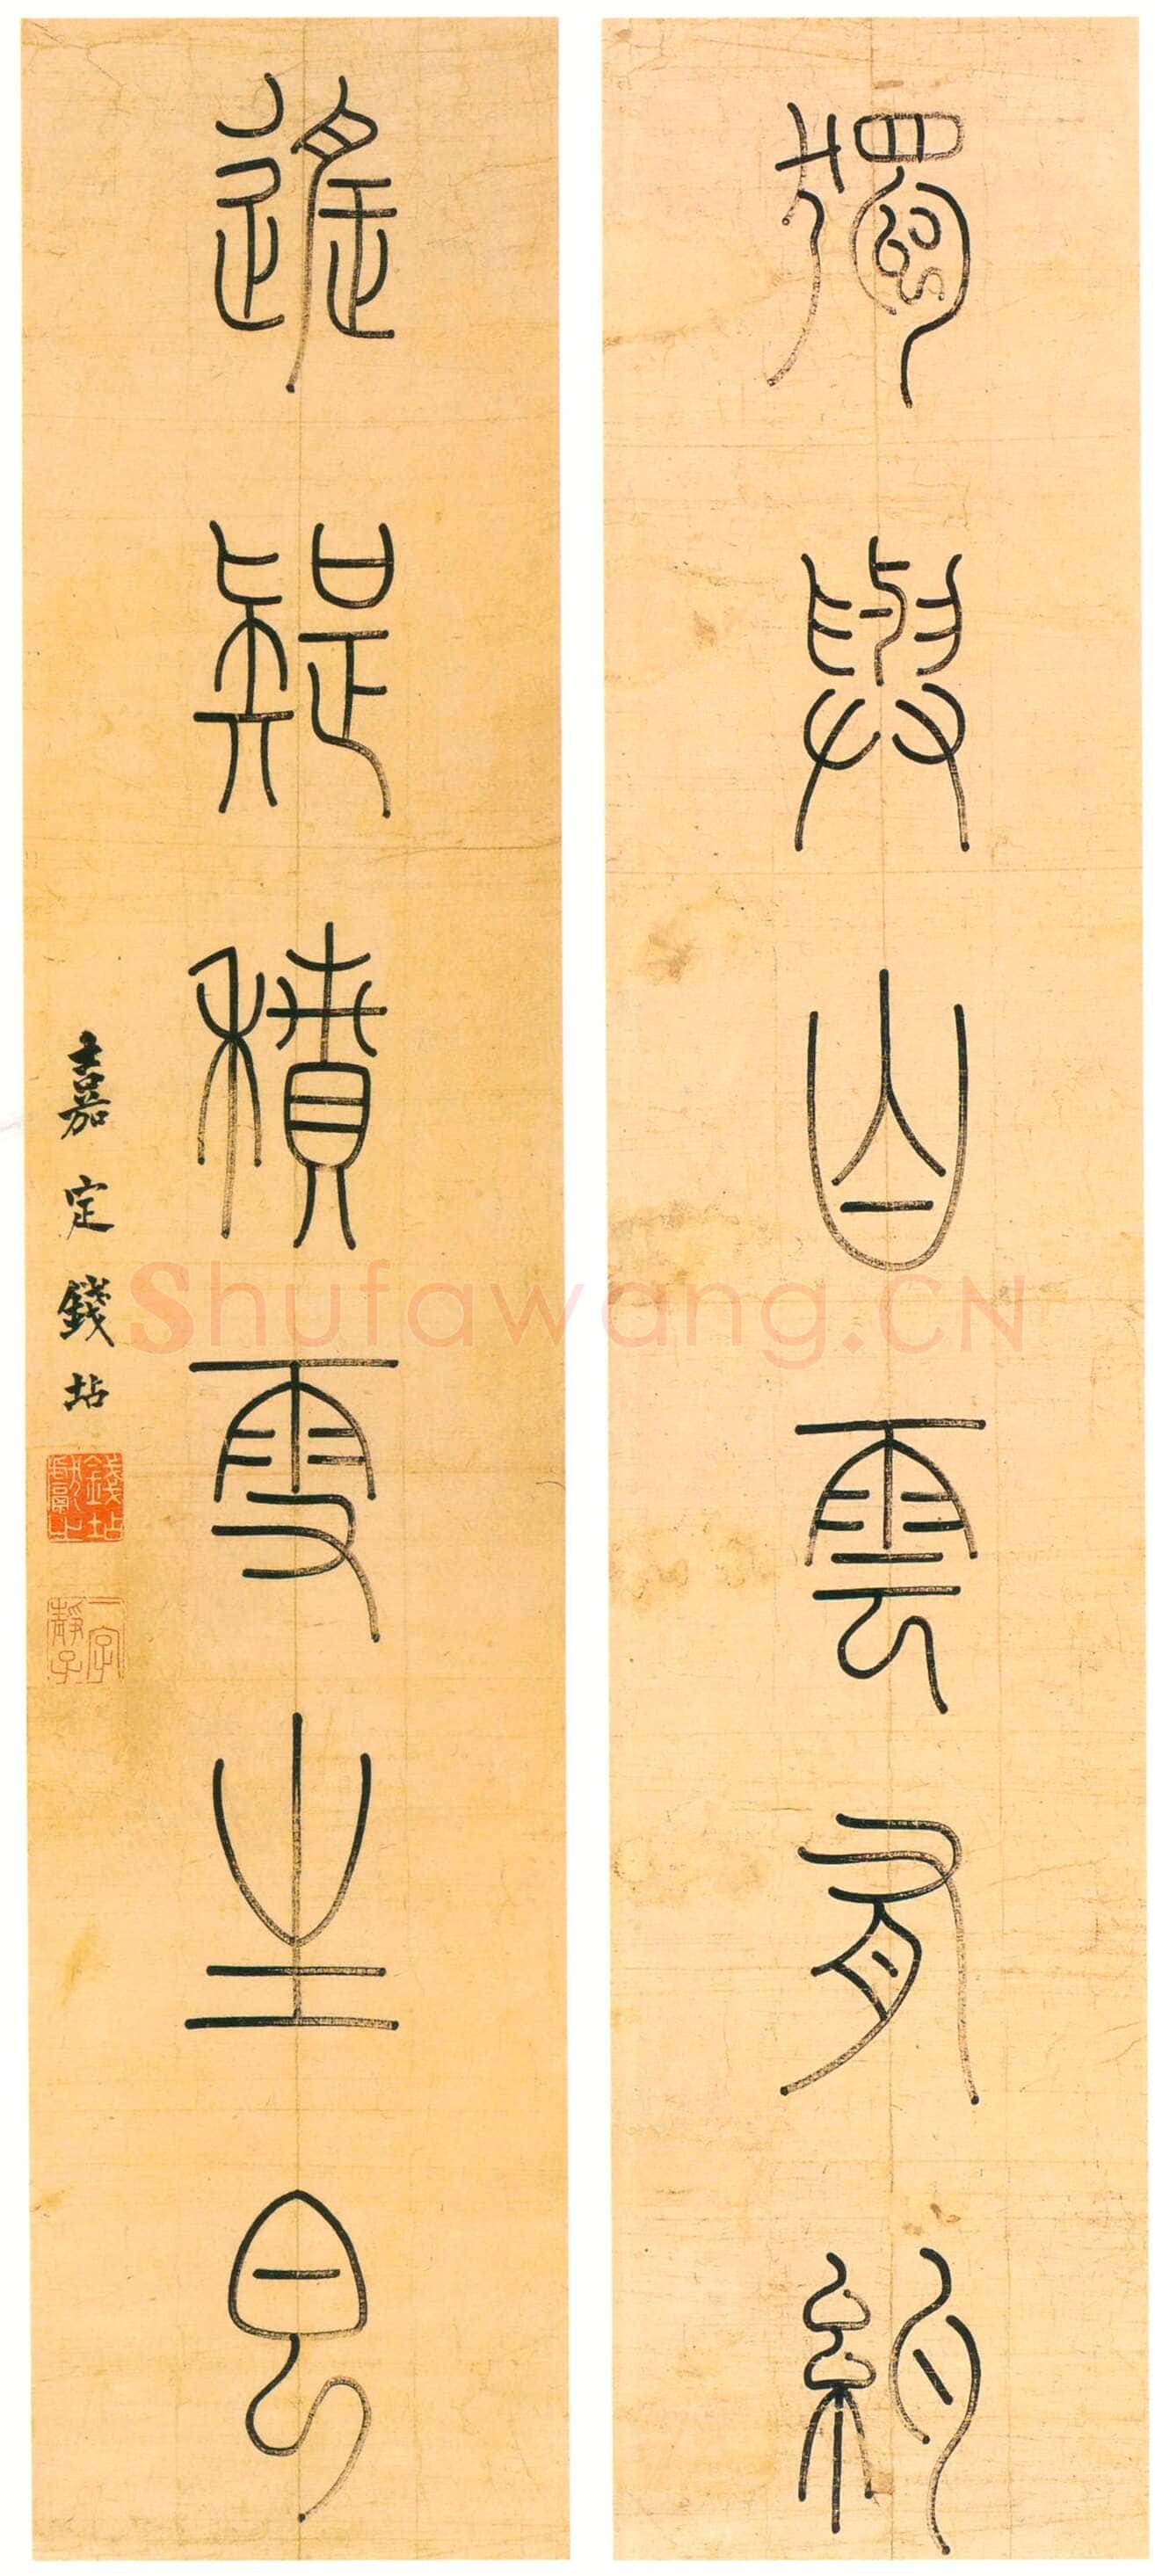 獨與山雲有約
遙積雪生
嘉定錢坫
錢坫獻之
Shufawang.CN